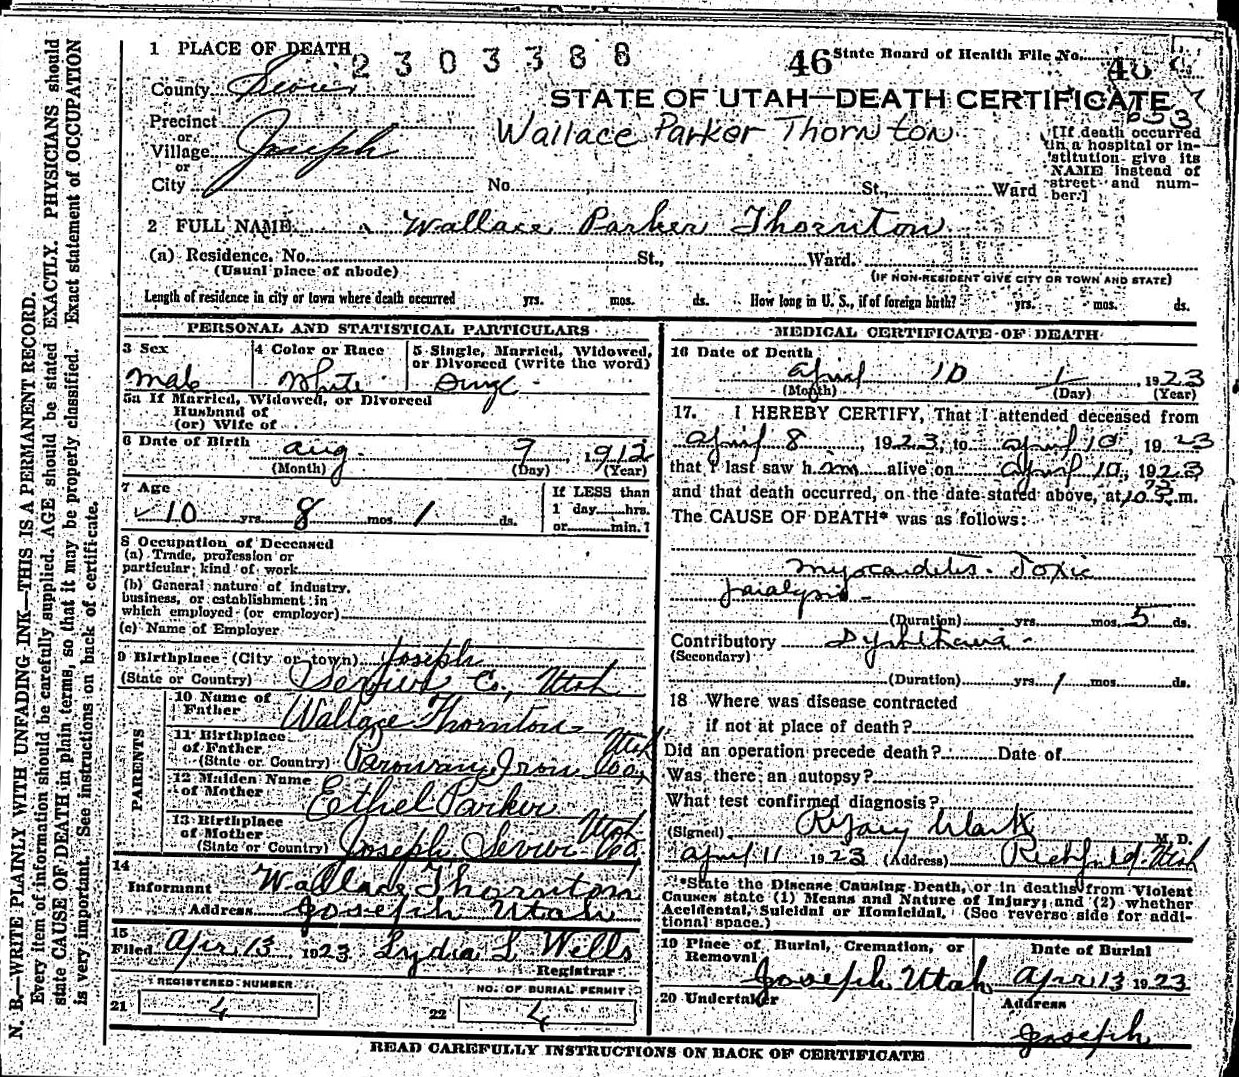 1 PLACE OF DEATH
2303388
46 State Board of Health File No. 46
County Sevier
STATE OF UTAH—DEATH CERTIFICATE
653
Precinct
or
Village Joseph
or
Wallace Parker Thornton
[If death occurred
in a hospital or in-
stitution give its
NAME instead of
street and num-
ber.]
City No. St., Ward
2 FULL NAME Wallace Parker Thornton
(a) Residence. No. St., Ward.
(Usual place of abode) (IF NON-RESIDENT GIVE CITY OR TOWN AND STATE)
Length of residence in city or town where death occurred yrs. mos. ds. How long in U. S., if of foreign birth? yrs. mos. ds.
PERSONAL AND STATISTICAL PARTICULARS
3 Sex
Male
4 Color or Race
White
5 Single, Married, Widowed,
or Divorced (write the word)
Single
5a If Married, Widowed, or Divorced
Husband of
(or) Wife of
6 Date of Birth Aug. 7 1912
(Month) (Day) (Year)
7 Age
10 yrs. 8 mos. 1 ds.
If LESS than
1 day hrs.
or min.?
8 Occupation of Deceased
(a) Trade, profession or
particular kind of work
(b) General nature of industry,
business, or establishment in
which employed (or employer)
(c) Name of Employer
9 Birthplace (City or town) Joseph
(State or Country) Sevier Co., Utah
PARENTS
10 Name of
Father Wallace Thornton
11 Birthplace
of Father
(State or Country) Parowan, Iron Co., Utah
12 Maiden Name
of Mother Ethel Parker
13 Birthplace
of Mother
(State or Country) Joseph, Sevier Co., Utah
14
Informant Wallace Thornton
Address Joseph Utah
15
Filed Apr 13 1923 Lydia L Wells
Registrar
REGISTERED NUMBER
21 4
NO. OF BURIAL PERMIT
22 4
MEDICAL CERTIFICATE OF DEATH
16 Date of Death
April 10 1923
(Month) (Day) (Year)
17. I HEREBY CERTIFY, That I attended deceased from
April 8, 1923, to April 10, 1923
that I last saw him alive on April 10, 1923
and that death occurred, on the date stated above, at 10 m.
The CAUSE OF DEATH* was as follows:
Myocarditis. Toxic
paralysis
(Duration) yrs. mos. 5 ds.
Contributory Dyphtheria
(Secondary)
(Duration) yrs. 1 mos. ds.
18 Where was disease contracted
if not at place of death?
Did an operation precede death? Date of
Was there an autopsy?
What test confirmed diagnosis?
(Signed) M. D.
April 11 1923 (Address) Richfield Utah
*State the Disease Causing Death, or in deaths from Violent
Causes state (1) Means and Nature of Injury; and (2) whether
Accidental, Suicidal or Homicidal. (See reverse side for addi-
tional space.)
19 Place of Burial, Cremation, or
Removal
Joseph Utah
Date of Burial
Apr 13 1923
20 Undertaker
Address
Joseph
READ CAREFULLY INSTRUCTIONS ON BACK OF CERTIFICATE
N. B.—WRITE PLAINLY WITH UNFADING INK—THIS IS A PERMANENT RECORD.
Every item of information should be carefully supplied. AGE should be stated EXACTLY. PHYSICIANS should
state CAUSE OF DEATH in plain terms, so that it may be properly classified. Exact statement of OCCUPATION
is very important. See instructions on back of certificate.